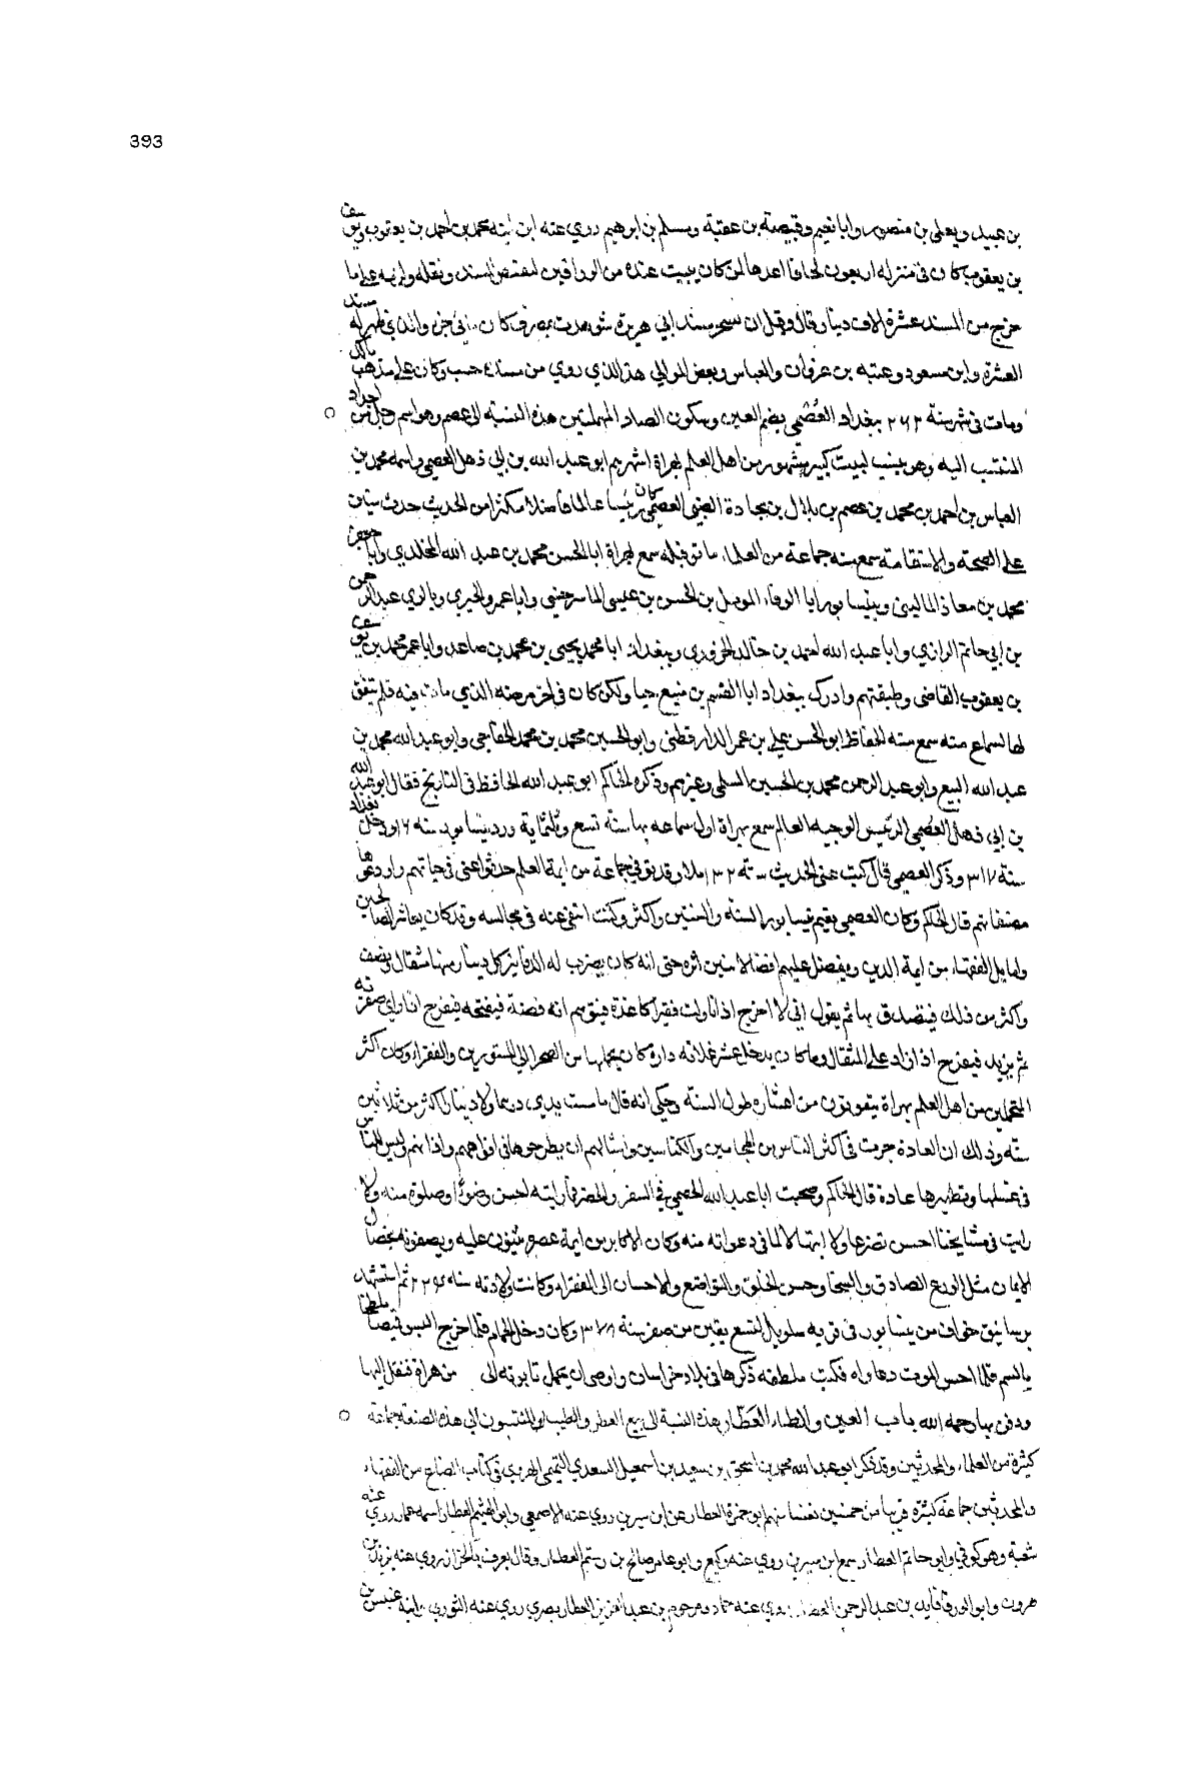 393
بن عبيد ويعلى بن منصور وابا نعيم وقبيصة بن عقبة ومسلم بن ابرهيم روي عنه ابن ابنه محمد بن احمد بن يعقوب ويوسف
بن يعقوب كان في منزله اربعون لحافا اعدها لمن كان يبيت عنده من الوراقين المسند ونقله ولزمه على ما
خرج من المسند عشرة الاف دينار قال وقيل ان مسند ابي هريرة شوهدت بمصر فكان جزء والذي ظهر له مسند
العشرة وابن مسعود وعتبه بن غزوان والعباس وبعض الموالي هذا الذي روي من مسنده حسب وكان على مذهب مالك
ومات في شهر سنة ٢٦٢ ببغداد العُصْمي بضم العين وسكون الصاد المهملتين هذه النسبة الى عصم وهو اسم رجل من اجداد
المنتسب اليه وهو ينسب لبيت كبير مشهور من اهل العلم بهراة اشهرهم ابو عبد الله بن ابي ذهل العصمي واسمه محمد بن
العباس بن احمد بن محمد بن عصم بن بلال بن بجادة الضبي العصمي كان رئيسا عالما فاضلا مكثرا من الحديث حدث سنين
على الصحة والاستقامة سمع منه جماعة من العلماء ماتو قبله سمع بهراة ابا الحسن محمد بن عبد الله المخلدي وابا جعفر
محمد بن معاذ الماليني وبنيسابور ابا الوفاء المومل بن الحسن بن عيسى الماسرجسي وابا عمرو الحيري وبالري عبد الرحمن
بن ابي حاتم الرازي وابا عبد الله احمد بن خالد الحزوري وببغداد ابا محمد يحيى بن محمد بن صاعد وابا عمر محمد بن يوسف
بن يعقوب القاضي وطبقتهم وادرك ببغداد ابا القسم بن منيع حيا ولكن كان في اخر مرضه الذي مات فيه فلم يتفق
لها السماع منه سمع منه الحفاظ ابو الحسن علي بن عمر الدارقطني وابو الحسين محمد بن محمد الحجاجي وابو عبد الله محمد بن
عبد الله البيع وابو عبد الرحمن محمد بن الحسين السلمي وغيرهم وذكره الحاكم ابو عبد الله الحافظ في التاريخ فقال ابو عبد الله
بن ابي ذهل العُصمي الرئيس الوجيه العالم سمع بهراة اول سماعه بها سنة تسع وثلثماية ورد نيسابور سنه ١٦ ودخل بغداد
سنة ٣١٧ وذكر العصمي قال كتبت عني الحديث املاء وقد توفي جماعة من ايمة العلم حدثوا عني في حياتهم واودعوها
مصنفاتهم قال الحاكم وكان العصمي يقيم نيسابور السنه والسنتين واكثر وكنت انتقي عنه في مجالسه وقد كان يعاشر الصالحين
واماثل الفقهاء من ايمة الدين ويفضل عليهم افضالا بين اثره حتى انه كان يضرب له الدنانير كل دينار منها مثقال ونصف
واكثر من ذلك فيتصدق بها ثم يقول اني لا افرح اذا ناولت فقيرا كاغذة فيتوهم انه فضة فيفتحه فيفرح اذا راي صفرته
ثم يزنه فيفرح اذا زاد على المثقال وما كان يدخل عشر غلاته داره كان يحملها من الصحرا الى المستورين والفقراء وكان اكثر
المتجملين من اهل العلم بهراة يتقوتون من اعشاره طول السنه وحكي انه قال ما مست يدي درهما ولا دينارا اكثر من ثلاثين
سنه وذلك ان العادة جرت في اكثر الناس من الحجامين والكناسين وامثالهم ان يطرحوها في افواههم واذانهم وليس للناس
في غسلها وتطهيرها عادة قال الحاكم وصحبت ابا عبد الله العصمي في السفر والحضر فما رايته احسن وضوءا وصلوة منه ولا
رايت في مشايخنا احسن تضرعا ولا ابتهالا لما في دعواته منه وكان الاكابر من ايمة عصره يثنون عليه ويصفونه بخصال
الايمان مثل الورع الصادق والسخا وحسن الخلق والتواضع والاحسان الى الفقراء وكانت ولادته سنه ثم استشهد
برستاق خواف من نيسابور في قريه سلوبل لتسع بقين من صفر سنة ٣٧٨ وكان دخل الحمام فلما خرج البس قميصا ملطخا
بالسم فلما احس الموت دعا دواه فكتب ملطفه ذكرها في بلاد خراسان واوصى ان يحمل تابوته الى من هراة فنقل اليها
ودفن بها رحمه الله باب العين والطاء العَطَّار هذه النسبة الى بيع العطر والطيب والمنتسبون الى هذه الصنعة جماعة
كثيرة من العلماء والمحدثين وقد ذكر ابو عبد الله محمد بن اسحق بن سعيد بن اسمعيل السعدي التيمي الهروي في كتاب الصناع من الفقهاء
والمحدثين جماعة كثيرة قريبا من خمسين نفسا منهم ابو حمزة العطار عن ابن سيرين روي عنه الاصمعي وابو الهيثم العطار اسمه عمار روي عنه
شعبة وهو كوفي وابو حاتم العطار سمع ابن سيرين روي عنه وكيع وابو عامر صالح بن رستم العطار وقال يعرف بالخزاز روي عنه يزيد بن
هرون وابو الورقا فايد بن عبد الرحمن العطار روي عنه حماد ومرحوم بن عبد العزيز العطار بصري روي عنه الثوري وابنه عبيس بن